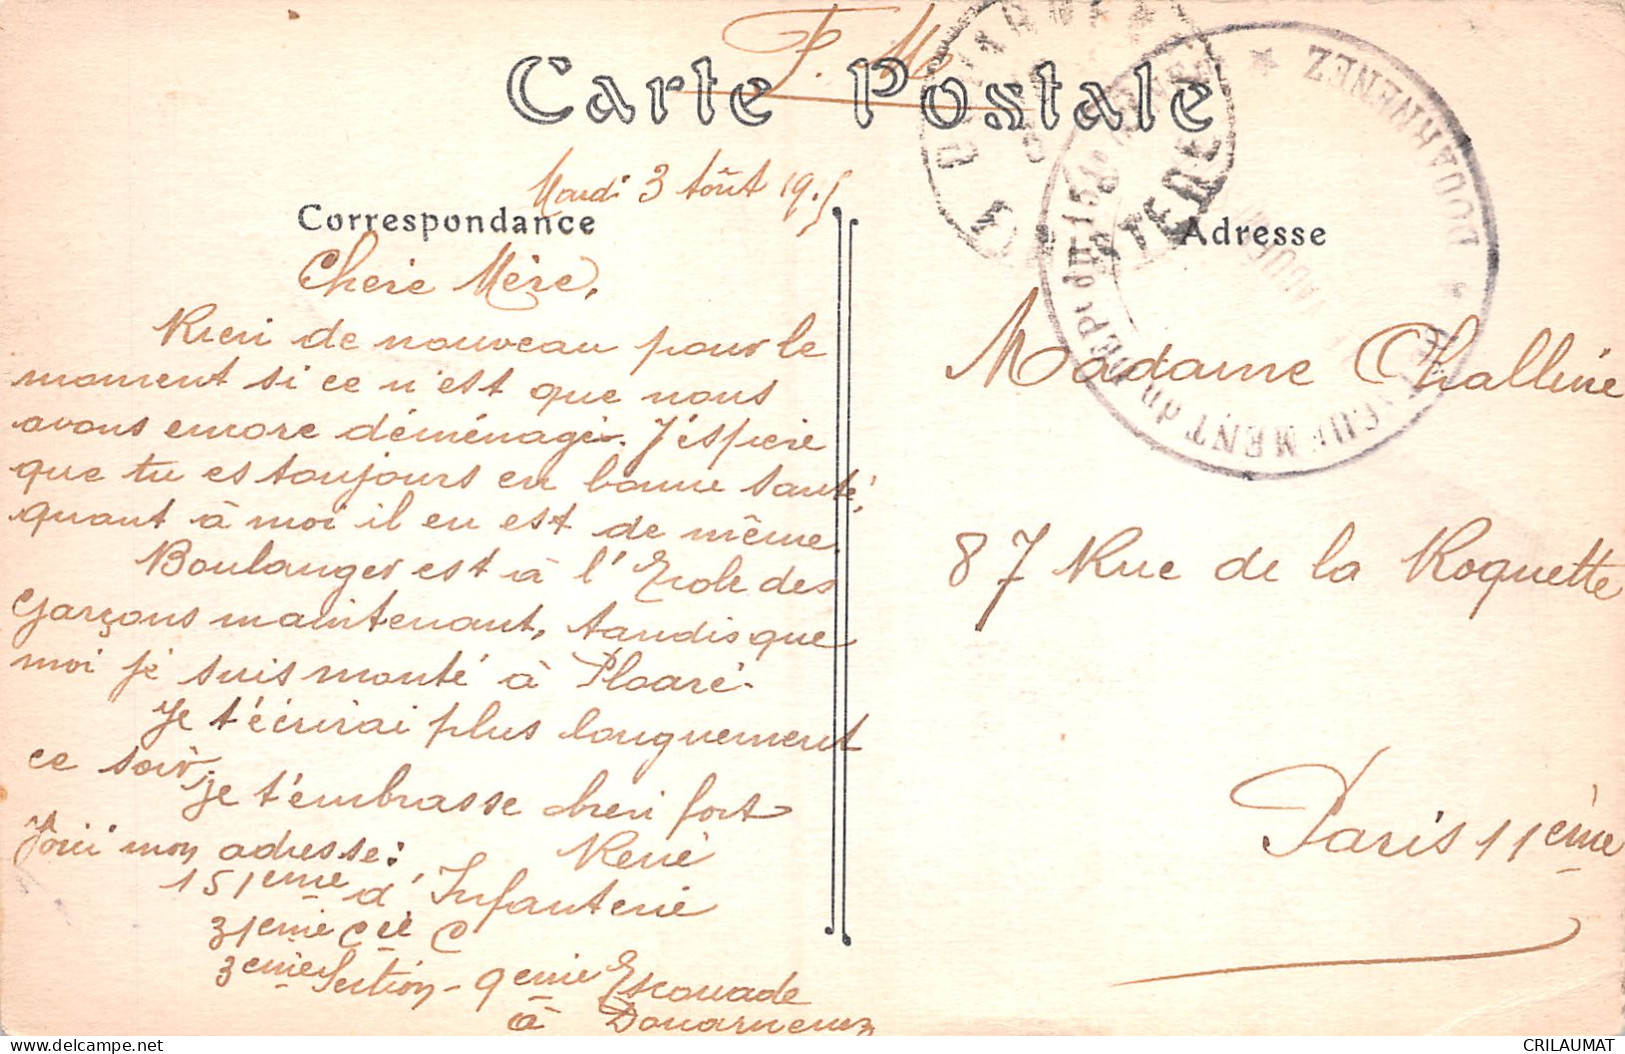 F. M.
Carte Postale
Mardi 3 Août 19.5
Correspondance
Chère Mère,
Rien de nouveau pour le
moment si ce n'est que nous
avons encore déménagé. J'espère
que tu es toujours en bonne santé,
quant à moi il en est de même.
Boulanger est à l'Ecole des
Garçons maintenant, tandis que
moi je suis monté à Ploaré.
Je t'écrirai plus longuement
ce soir.
Je t'embrasse bien fort
René
Voici mon adresse:
151ème d'Infanterie
31ème Cie C
3ème Section - 9ème Escouade
à Douarnenez
Adresse
Madame Challine
87 Rue de la Roquette
Paris 11ème
DOUARNENEZ
DÉTACHEMENT du DÉPÔT du 151e
CRILAUMAT